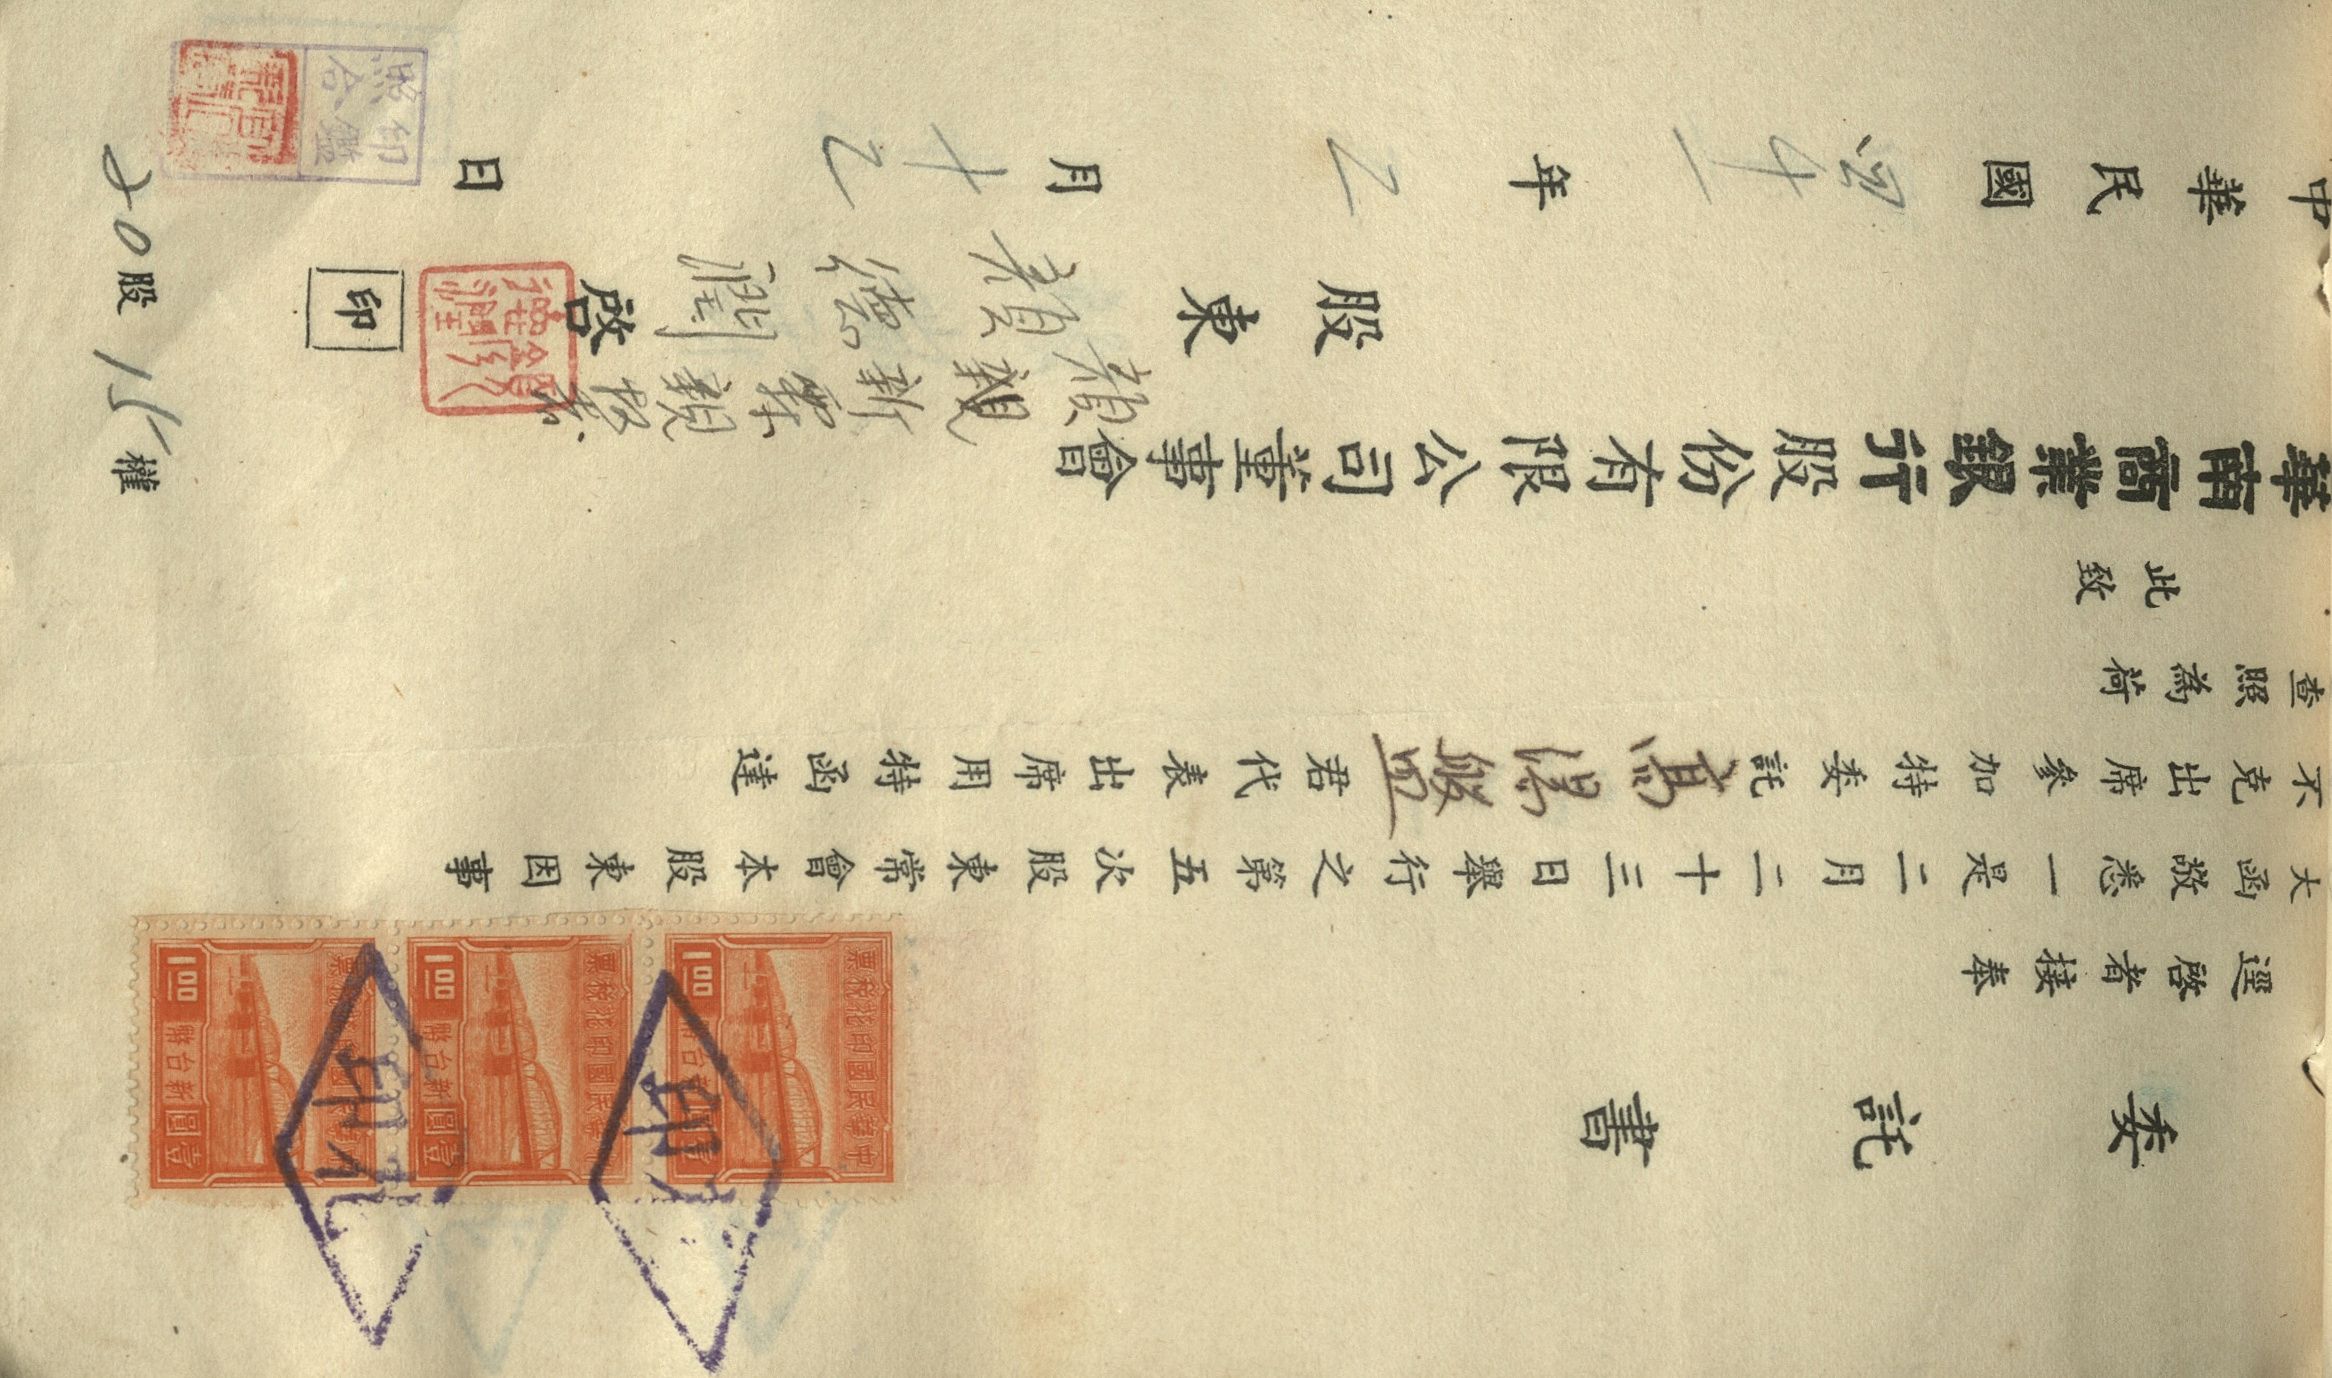 委託書
逕啓者接奉
大函敬悉一是二月二十三日舉行之第五次股東常會本股東因事
不克出席參加特委託高湯盤君代表出席用特函達
查照為荷
此致
華南商業銀行股份有限公司董事會
股東 賴德潤 啓 印
賴
中華民國四十一年2月十2日
20股 15權
印鑑
照合
中華民國印花稅票
壹圓
新台幣
1.00
中華民國印花稅票
壹圓
新台幣
1.00
中華民國印花稅票
壹圓
新台幣
1.00